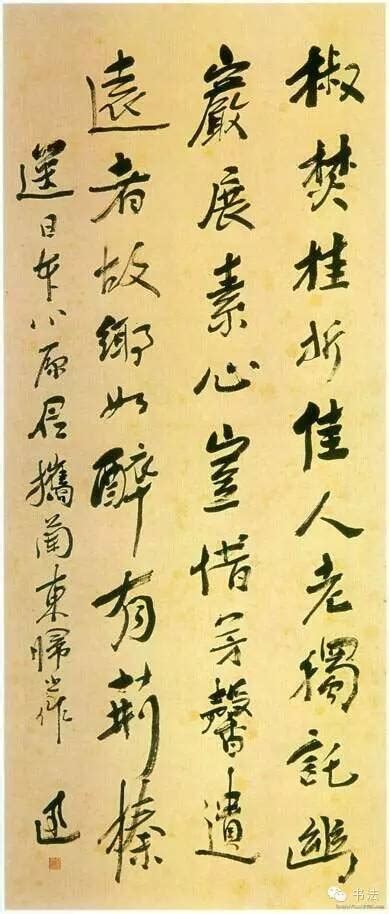 椒焚桂折佳人老獨託幽
巖展素心豈惜芳馨遺
遠者故鄉如醉有荊榛
送日本小原君攜蘭東歸作
迅
书法